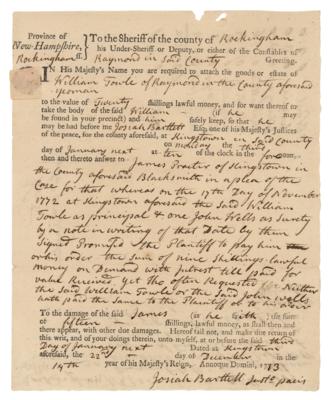 Province of
New-Hampshire,
Rockingham ss.
To the Sheriff of the county of Rockingham
his Under-Sheriff or Deputy, or either of the Constables of
Raymond in Said County Greeting.
IN His Majesty's Name you are required to attach the goods or estate of
William Towle of Raymond in the County aforesaid
yeoman
to the value of Twenty shillings lawful money, and for want thereof to
take the body of the said William (if he may
be found in your precinct) and him safely keep, so that he
may be had before me Josiah Bartlett Esq; one of his Majesty's Justices
of the peace, for the county aforesaid, at Kingstown in Said county
on monday the third
day of January next at ten of the clock in the forenoon,
then and thereto answer to James Procter of Kingstown in
the County aforesaid Blacksmith in a plea of the
Case for that whereas on the 17th Day of November
1772 at Kingstown aforesaid the Said William
Towle as principal & one John Wells as Surety
by a note in writing of that Date by them
Signed Promised the Plaintiff to pay him
or his order the Sum of nine Shillings Lawful
money on Demand with Intrest till paid for
value Received yet tho often Requested Neither
the Said William Towle or the Said John Wells
hath paid the Same to the Plaintiff
To the damage of the said James (as he saith) the sum
of fifteen shillings, lawful money, as shall then and
there appear, with other due damages. Hereof fail not, and make due return of
this writ, and of your doings therein, unto myself, at or before the said third
Day of January next Dated at Kingstown
aforesaid, the 22nd day of December in the
14th year of his Majesty's Reign, Annoque Domini, 1773
Josiah Bartlett Just: pacis